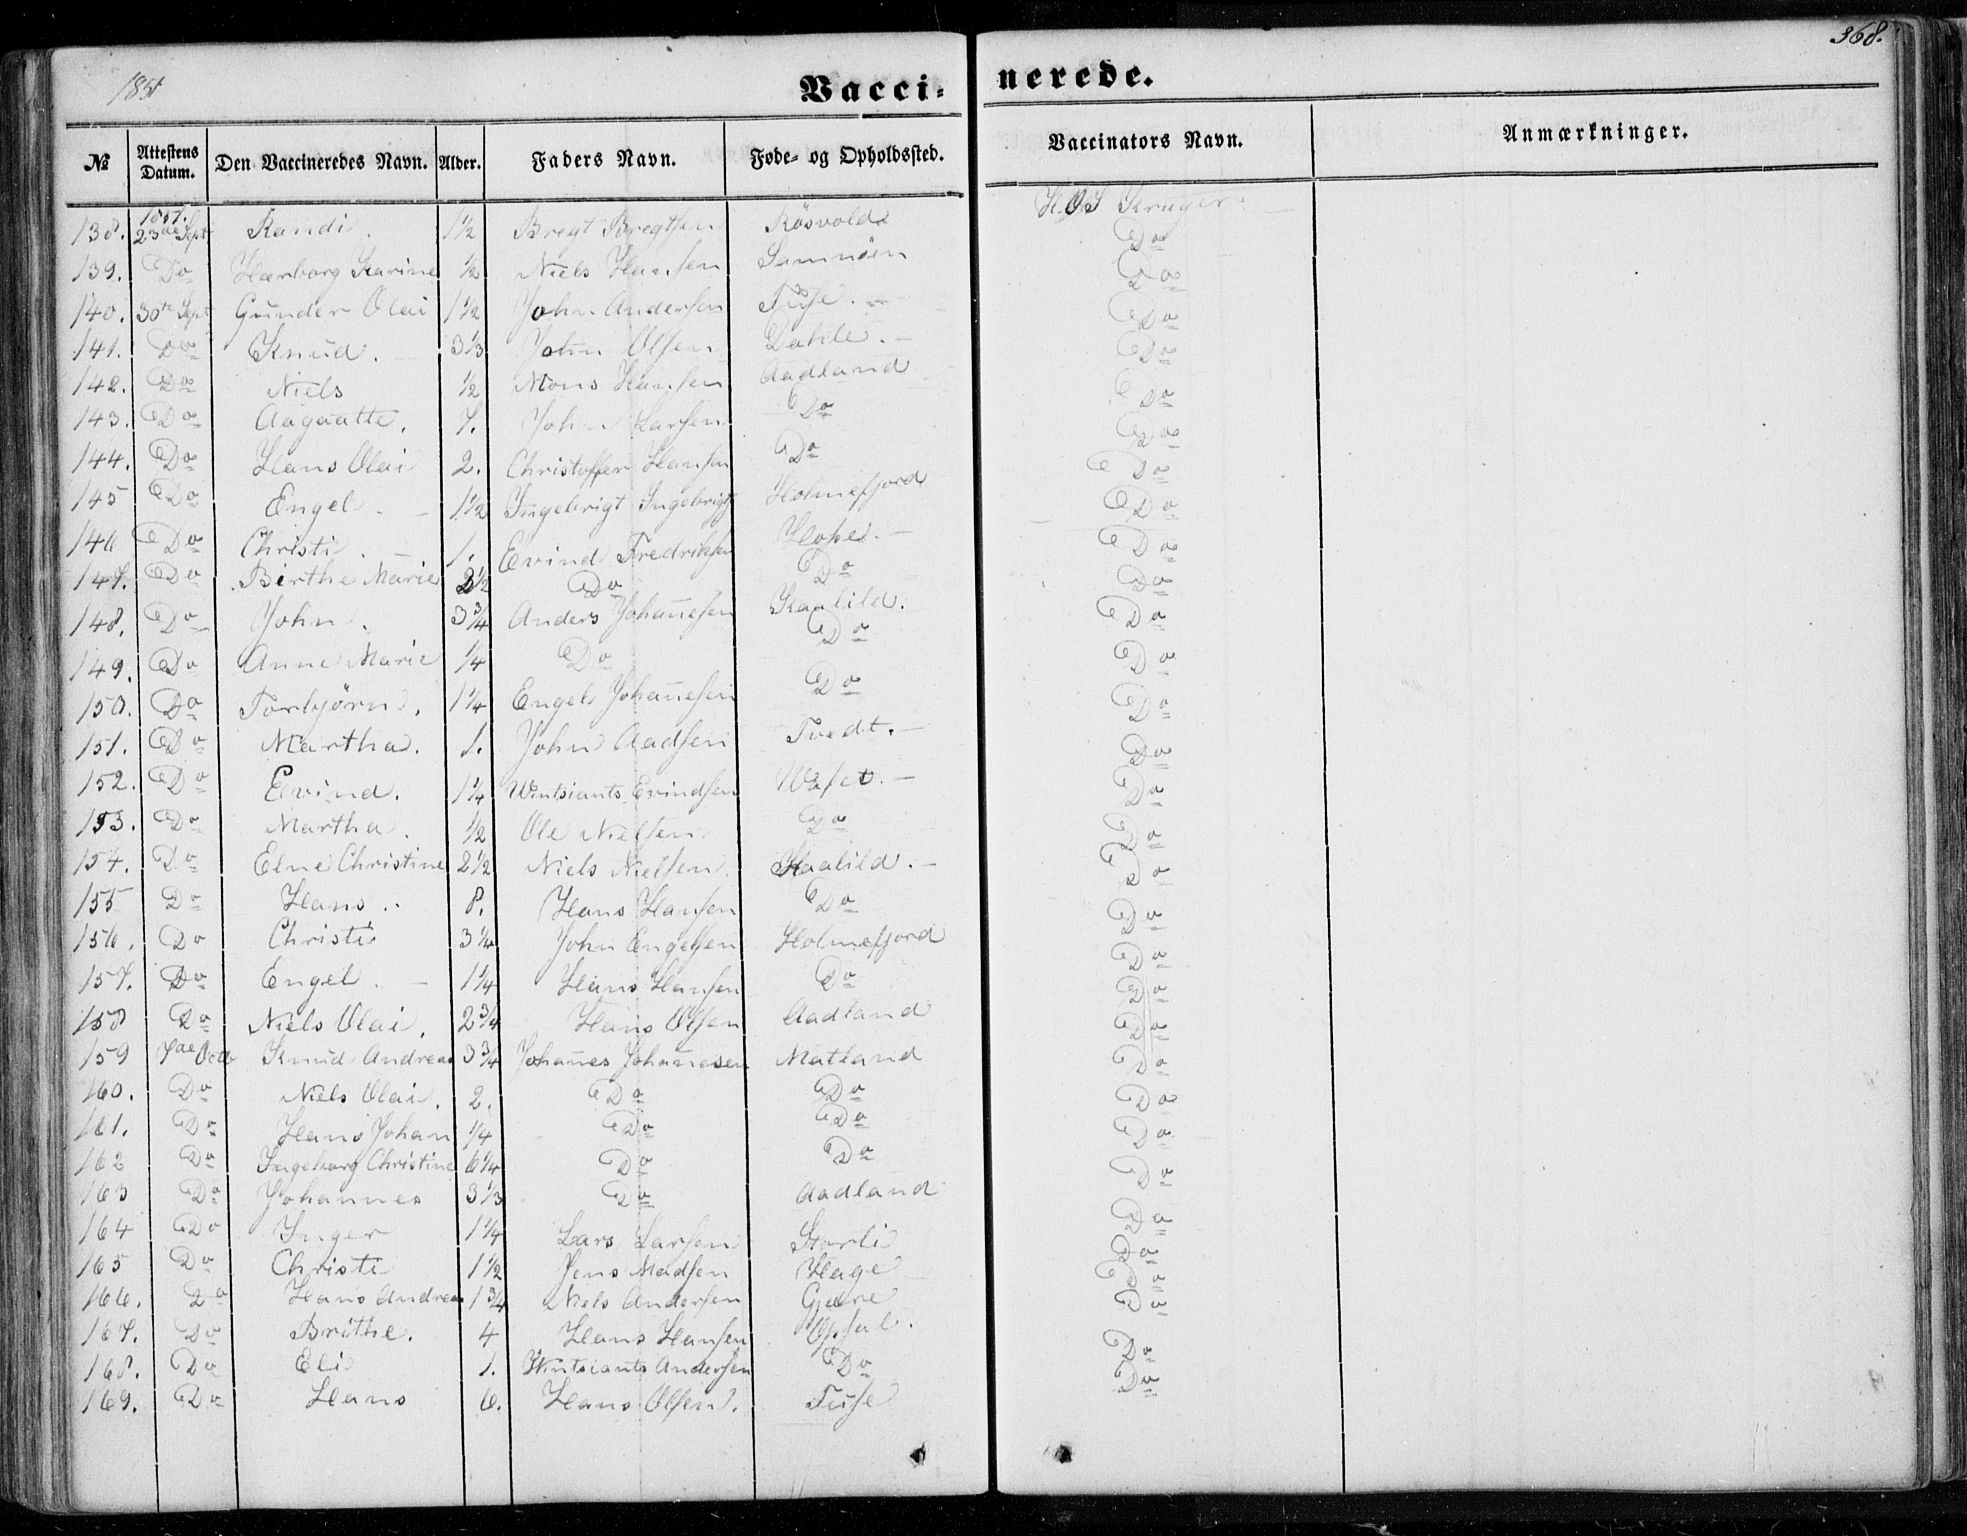 368.
1851
Vacci- nerede.
№ Attestens Datum. Den Vaccineredes Navn. Alder. Faders Navn. Føde- og Opholdssted. Vaccinators Navn. Anmærkninger.
138. 1851. 23de Sept Randi. 1½ Bregt Bregtsen Røsvold H.O.S Krüger.
139. Do Herborg Karine ½ Niels Hansen Samnøen Do
140. 30te Sept Gunder Olai 1½ John Andersen Tufe. Do
141. Do Knud. 3⅓ John Olsen Dahle. Do
142. Do Niels ½ Mons Hansen Aadland Do
143. Do Aagaatte. 7. John Larsen Do Do
144. Do Hans Olai 2. Christoffer Hansen Do Do
145 Do Engel. 1½ Ingebrigt Ingebrigts Holmefjord Do
146 Do Christi. 1. Evind Fredriksen Hope. Do
147. Do Birthe Marie ½ Do Do Do
148. Do John. 3¾ Anders Johannesen Skaalild. Do
149. Do Anne Marie ¼ Do Do Do
150. Do Torbjørn. 1¼ Engel Johannesen Do Do
151. Do Martha. 1. John Aadsen Tvedt. Do
152. Do Evind. 1¼ Wintsiants Evindsen Do
153. Do Martha. ½ Ole Nielsen Do Do
154. Do Elne Christine 2½ Niels Nielsen. Skaalild. Do
155 Do Hans.. 8. Hans Hansen Do Do
156. Do Christi 3¼ John Engelsen Holmefjord Do
157. Do Engel. 1¼ Hans Hansen Do Do
158 Do Niels Olai. 2¾ Hans Olsen Aadland Do
159 7de Octb Knud Andreas 3¾ Johannes Johannesen Matland Do
160. Do Niels Olai. 2. Do Do Do
161. Do Hans Johan ¼ Do Do Do
162 Do Ingeborg Christine 6¼ Do Do Do
163 Do Johannes 3⅓ Do Aadland Do
164 Do Inger 1¼ Lars Larsen Storli Do
165 Do Christi 1½ Jens Madsen Hage Do
166. Do Hans Andreas 1¾ Niels Andersen Gjære Do
167. Do Brithe. 4 Hans Hansen Opsal. Do
168. Do Eli 1. Wintsiants Andersen Do Do
169. Do Hans 6. Hans Olsen. Tufe Do